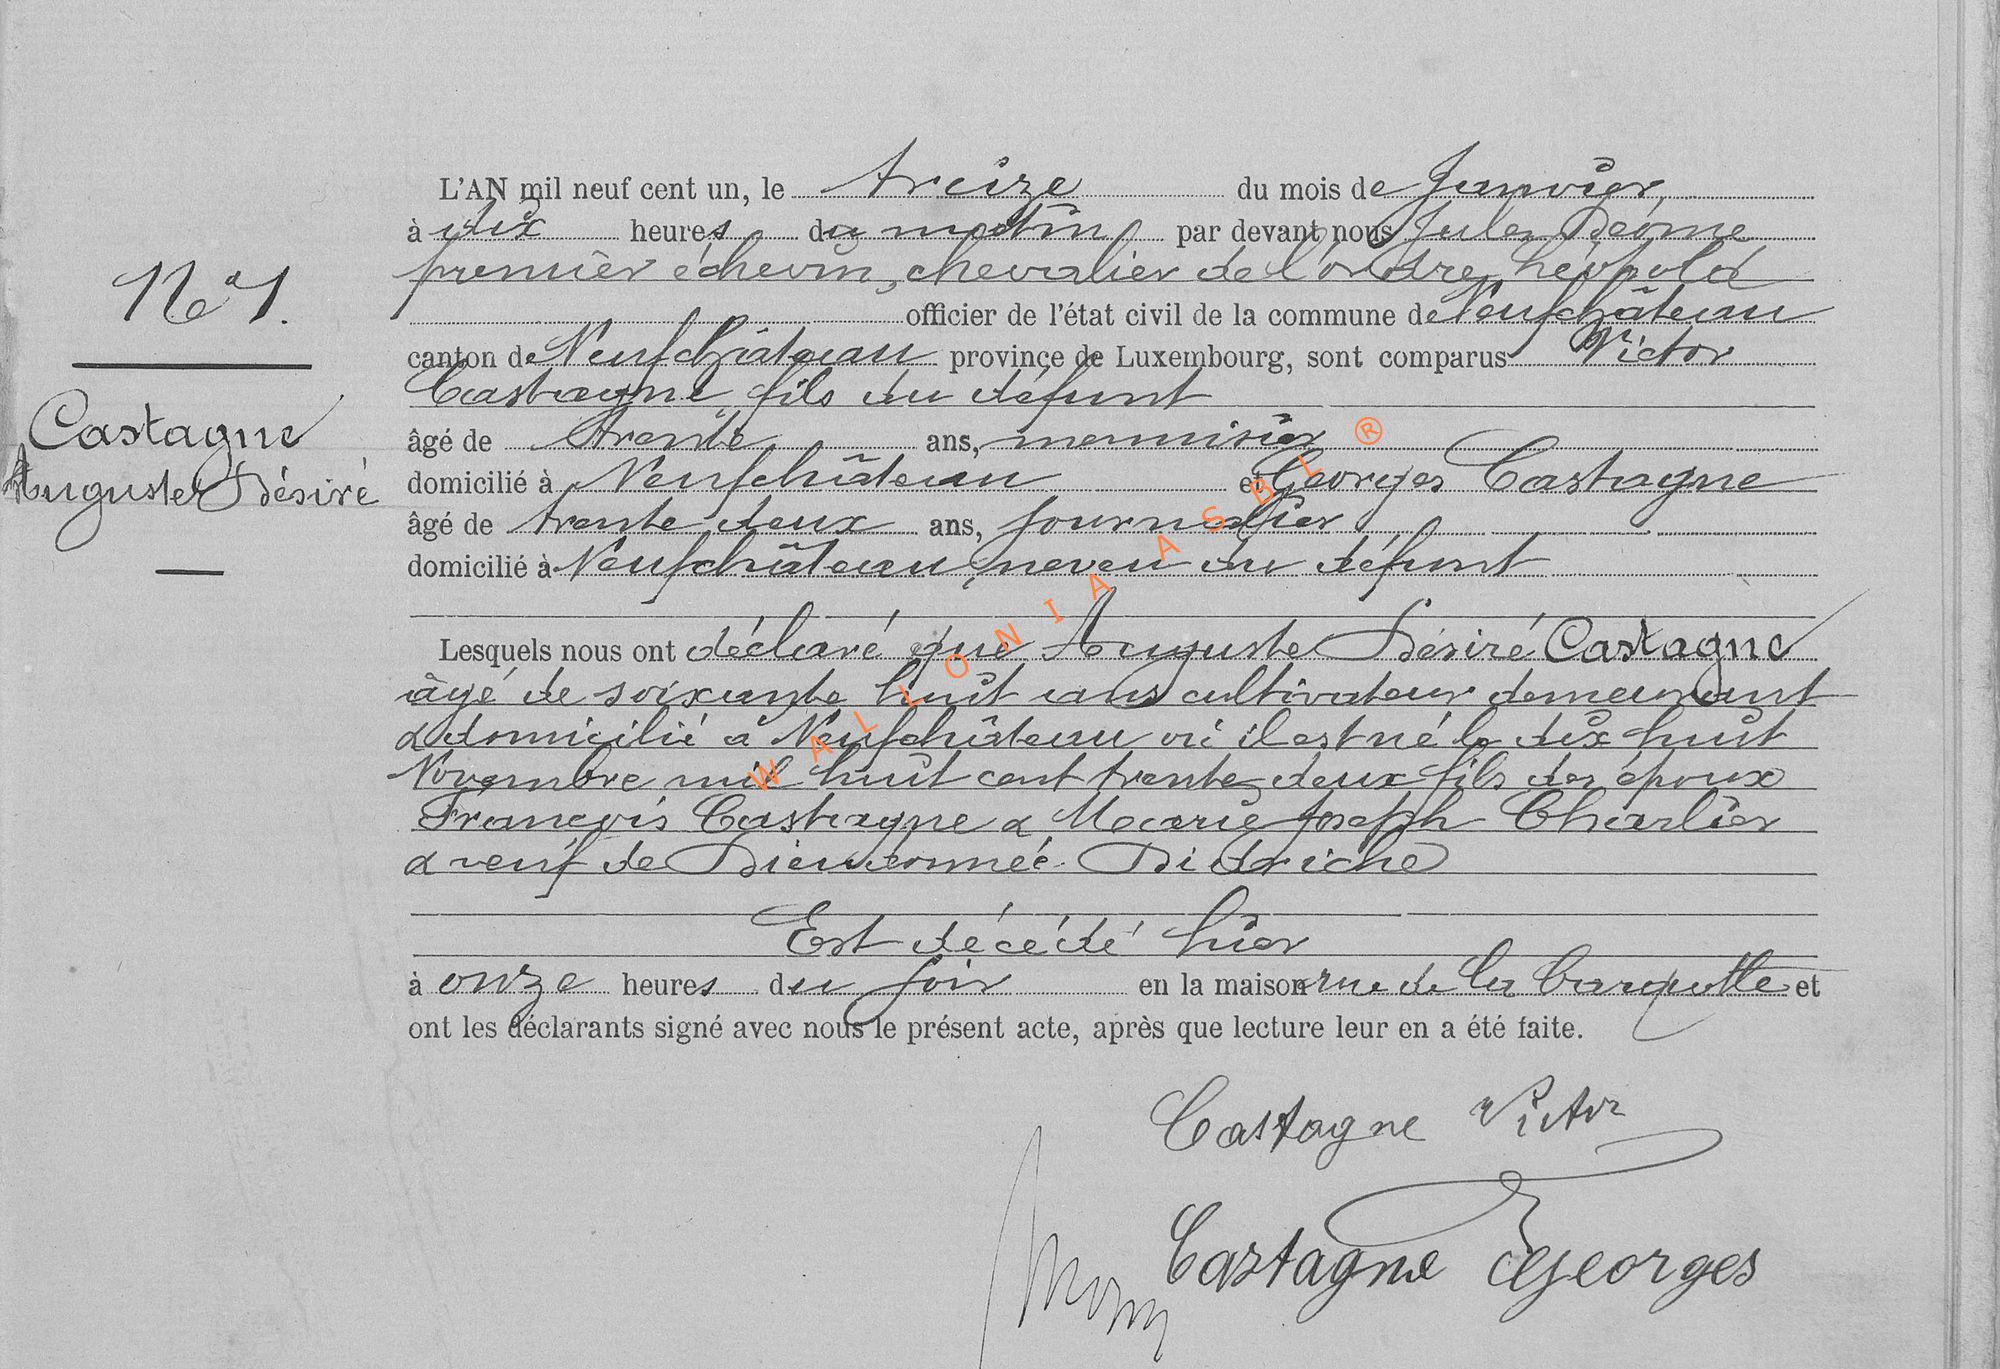 L'AN mil neuf cent un, le treize du mois de Janvier,
à dix heures du matin par devant nous Jules
premier échevin, chevalier de l'ordre Léopold
officier de l'état civil de la commune de Neufchâteau
canton de Neufchâteau province de Luxembourg, sont comparus Victor
Castagne, fils du défunt
âgé de trente ans, menuisier
domicilié à Neufchâteau et Georges Castagne
âgé de trente deux ans, journalier
domicilié à Neufchâteau, neveu du défunt
Lesquels nous ont déclaré que Auguste Désiré Castagne
âgé de soixante huit ans cultivateur demeurant
& domicilié à Neufchâteau où il est né le dix huit
Novembre mil huit cent trente deux fils des époux
François Castagne & Marie Joseph Charlier
& veuf de Dieudonnée Didriche
Est décédé hier
à onze heures du soir en la maison rue de la Barquette et
ont les déclarants signé avec nous le présent acte, après que lecture leur en a été faite.
Castagne Victor
Castagne Georges
N° 1.
Castagne
Auguste Désiré
WALLONIA ASBL ®